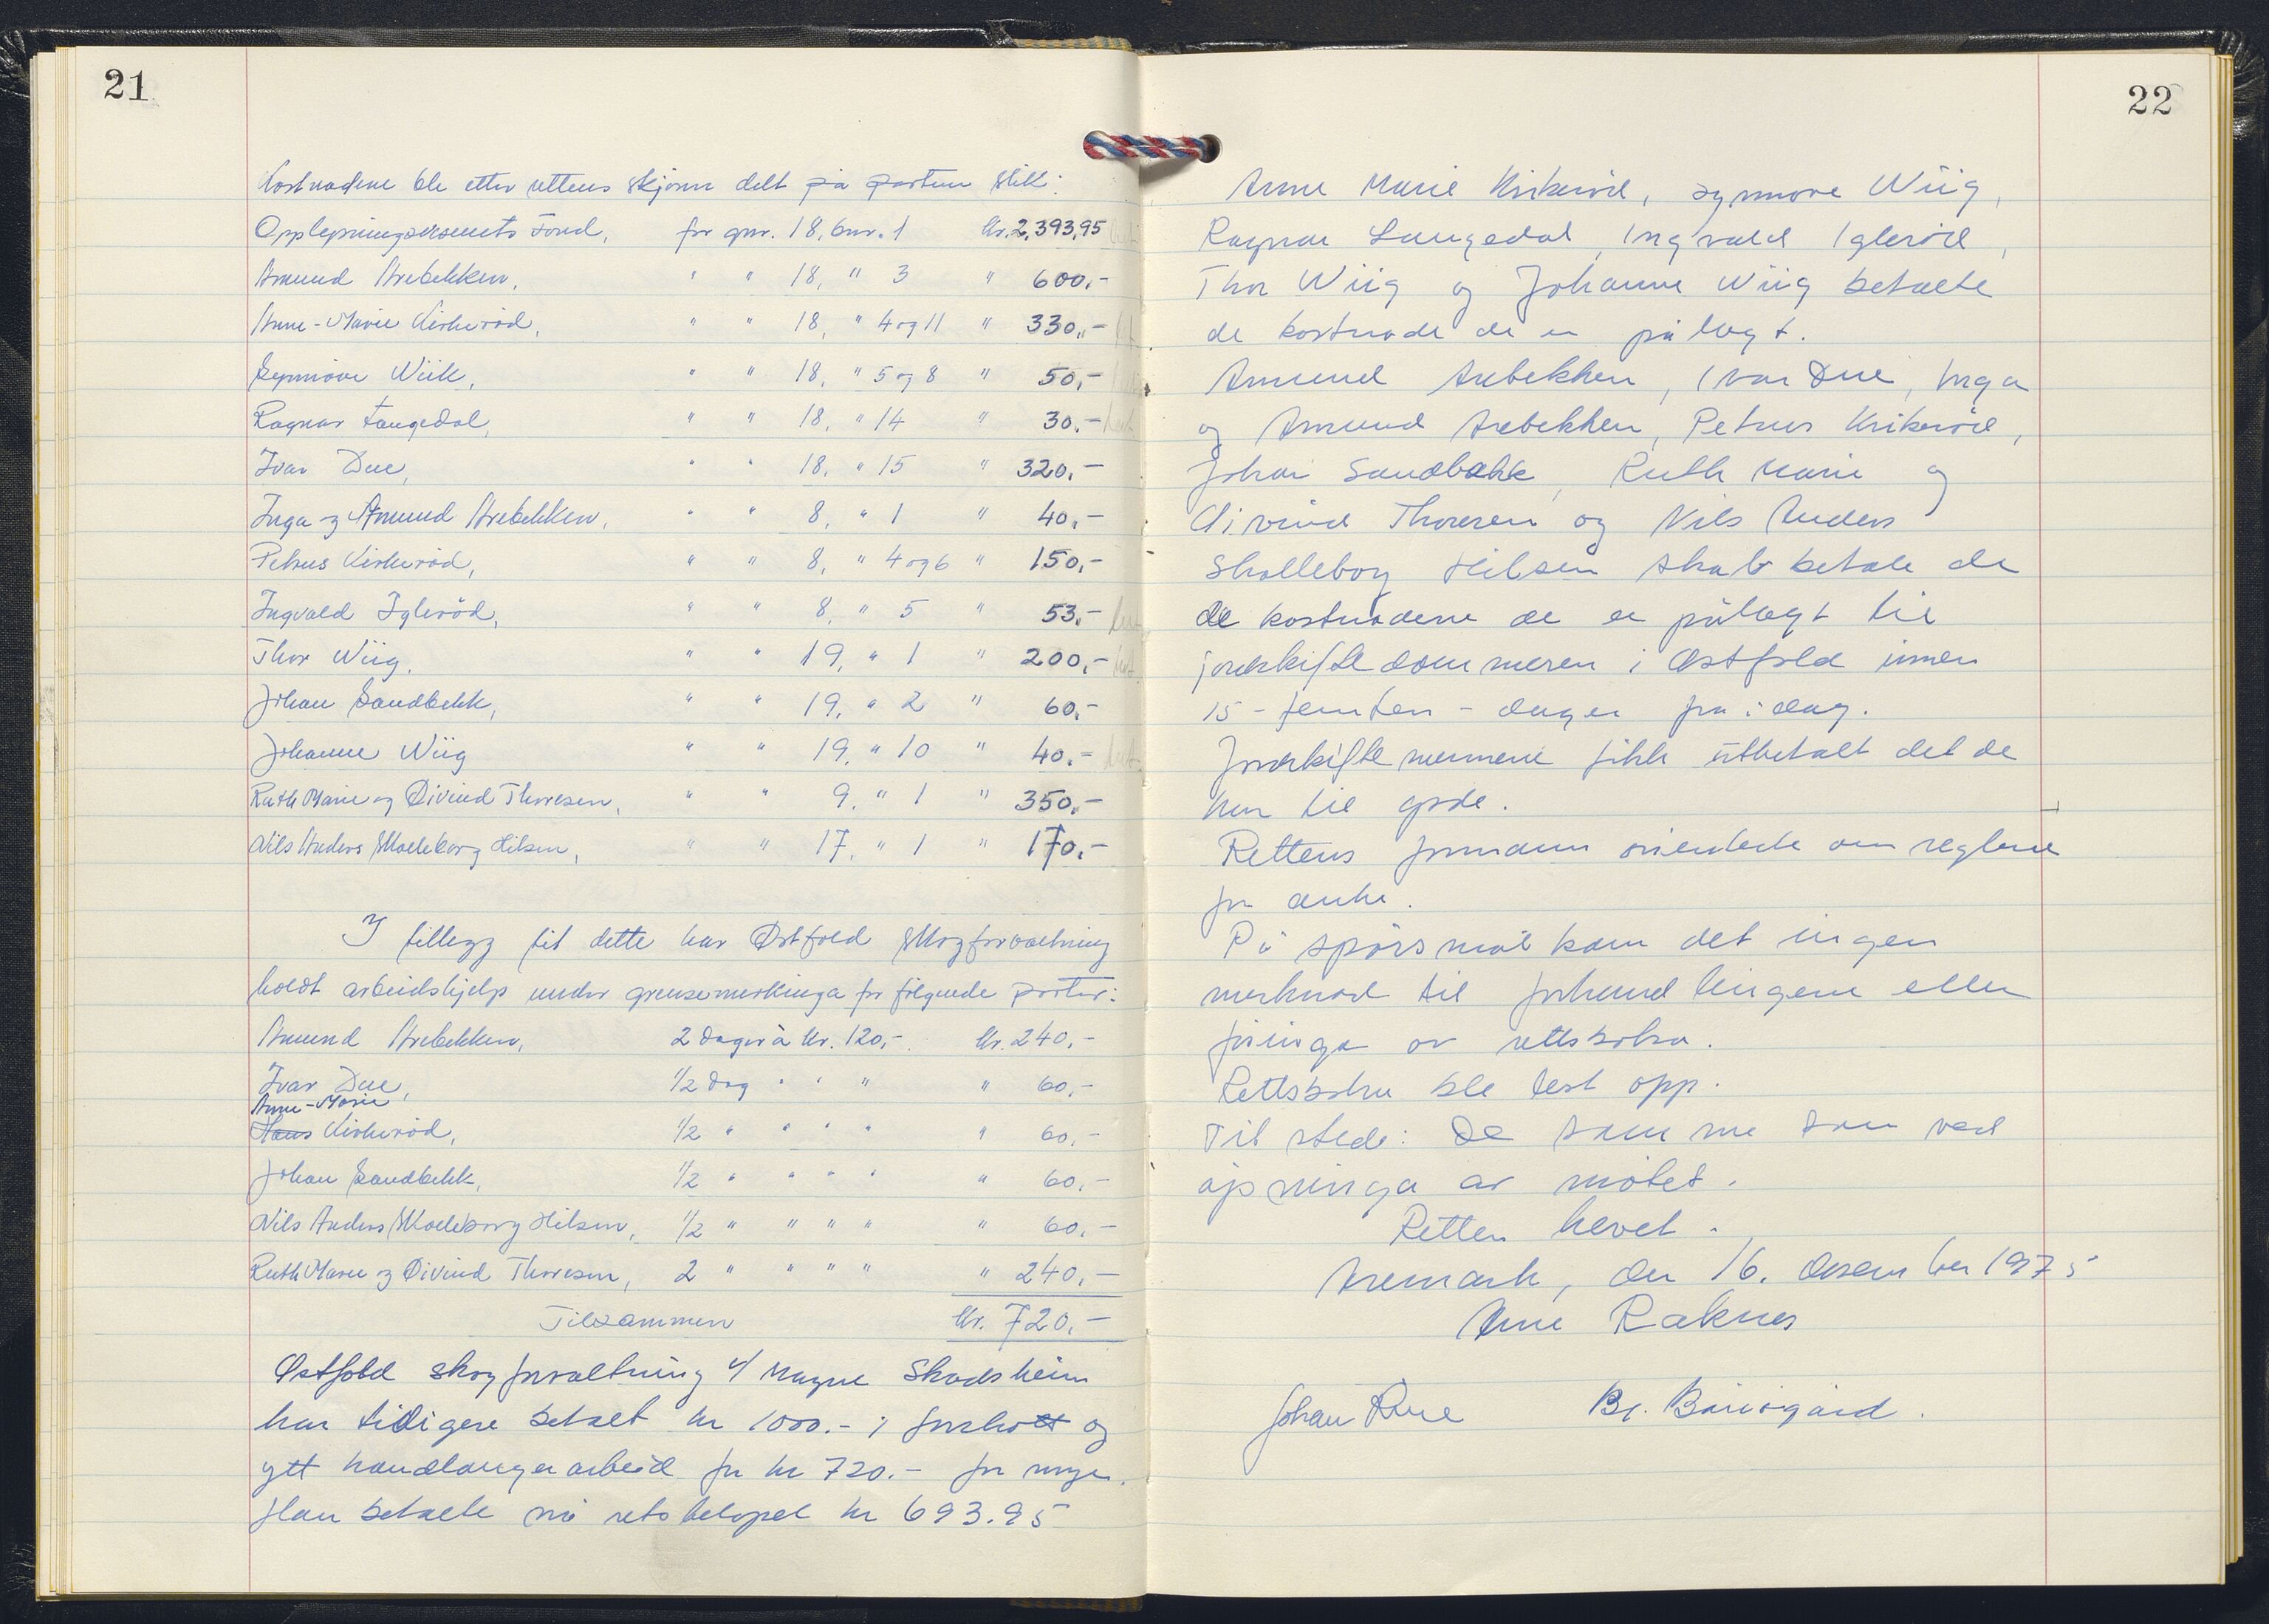 21
Kostnadene ble etter rettens skjønn delt på partene slik:
Opplysningsvesenets Fond, for gnr. 18, bnr. 1 kr. 2,393,95
Amund Arebekken, " " 18, " 3 " 600,-
Anne-Marie Kirkerød, " " 18, " 4 og 11 " 330,-
Synnøve Wiik, " " 18, " 5 og 8 " 50,-
Ragnar Langedal, " " 18, " 14 " 30,-
Ivar Due, " " 18, " 15 " 320,-
Inga og Amund Arebekken, " " 8, " 1 " 40,-
Petrus Kirkerød, " " 8, " 4 og 6 " 150,-
Ingvald Iglerød, " " 8, " 5 " 53,-
Thor Wiig, " " 19, " 1 " 200,-
Johan Sandbekk, " " 19, " 2 " 60,-
Johanne Wiig " " 19, " 10 " 40,-
Ruth Marie og Øivind Thoresen, " " 9, " 1 " 350,-
Nils Anders Skolleborg Hilsen, " " 17, " 1 " 170,-
I tillegg til dette har Østfold Skogforvaltning
holdt arbeidshjelp under grensemerkinga for følgende parter:
Amund Arebekken, 2 dager à kr. 120,- kr. 240,-
Ivar Due, 1/2 dag " " " " 60,-
Anne-Marie
Hans Kirkerød, 1/2 " " " " " 60,-
Johan Sandbekk, 1/2 " " " " " 60,-
Nils Anders Skolleborg Hilsen, 1/2 " " " " " 60,-
Ruth Marie og Øivind Thoresen, 2 " " " " " 240,-
Tilsammen kr. 720,-
Østfold skogforvaltning v/ Magne Skodsheim
har tidigere betalt kr 1000.- i forskott og
ytt handlangerarbeid for kr 720.- for
Han betalte nå restbeløpet kr 693.95
22
Anne Marie Kirkerød, Synnøve Wiig,
Ragnar Langedal, Ingvald Iglerød,
Thor Wiig og Johanne Wiig betalte
de kostnade de er pålagt.
Amund Arebekken, Ivar Due, Inga
og Amund Arebekken, Petrus Kirkerød,
Johan Sandbekk, Ruth Marie og
Øivind Thoresen og Nils Anders
Skolleborg Hilsen skal betale de
de kostnadene de er pålagt til
jordskiftedommeren i Østfold innen
15 - femten - dager fra i dag.
Jordskiftemennene fikk utbetalt det de
har til gode.
Rettens formann orienterte om reglene
for anke.
På spørsmål kom det ingen
merknad til forhandlingene eller
føringa av rettsboka.
Rettsboka ble lest opp.
Til stede: De samme som ved
åpninga av møtet.
Retten hevet.
Aremark, den 16. desember 1975
Arne Raknes
Johan Rue Bj. Bøvisgård.